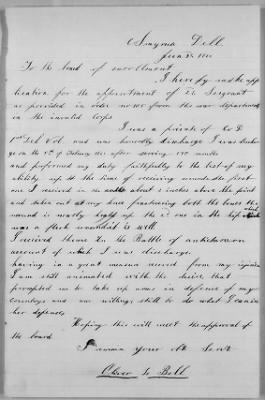 Smyrna Dell.
June 3
To the board of enrollment
I hereby make app
lication for the appointment of Sergant
as provided in order no 105 from the war department
in the invalid Corps
I was a private of Co D
1st Del Vol. and was honerably discharge I was discha
on the of after serving months
and performed my duty faithfully to the best of my
ability up to the time of receiving wounds the first
one I received in the about 2 inches above the joint
and taken out at my knee fracturing both the bones this
wound is neatly heald up. the 2 one in the hip which
was a flesh wound it is well
I received these In the Battle of antietam on
account of which I was discharge.
having in a great measure recoverd from my injuries
I am still animated with the desire, that
prompted me to take up arms in defence of my
country and am willing still to do what I can in
her defence
Hoping this will meet the approval of
the board
I remain your obt Servt
Oliver S. Bell